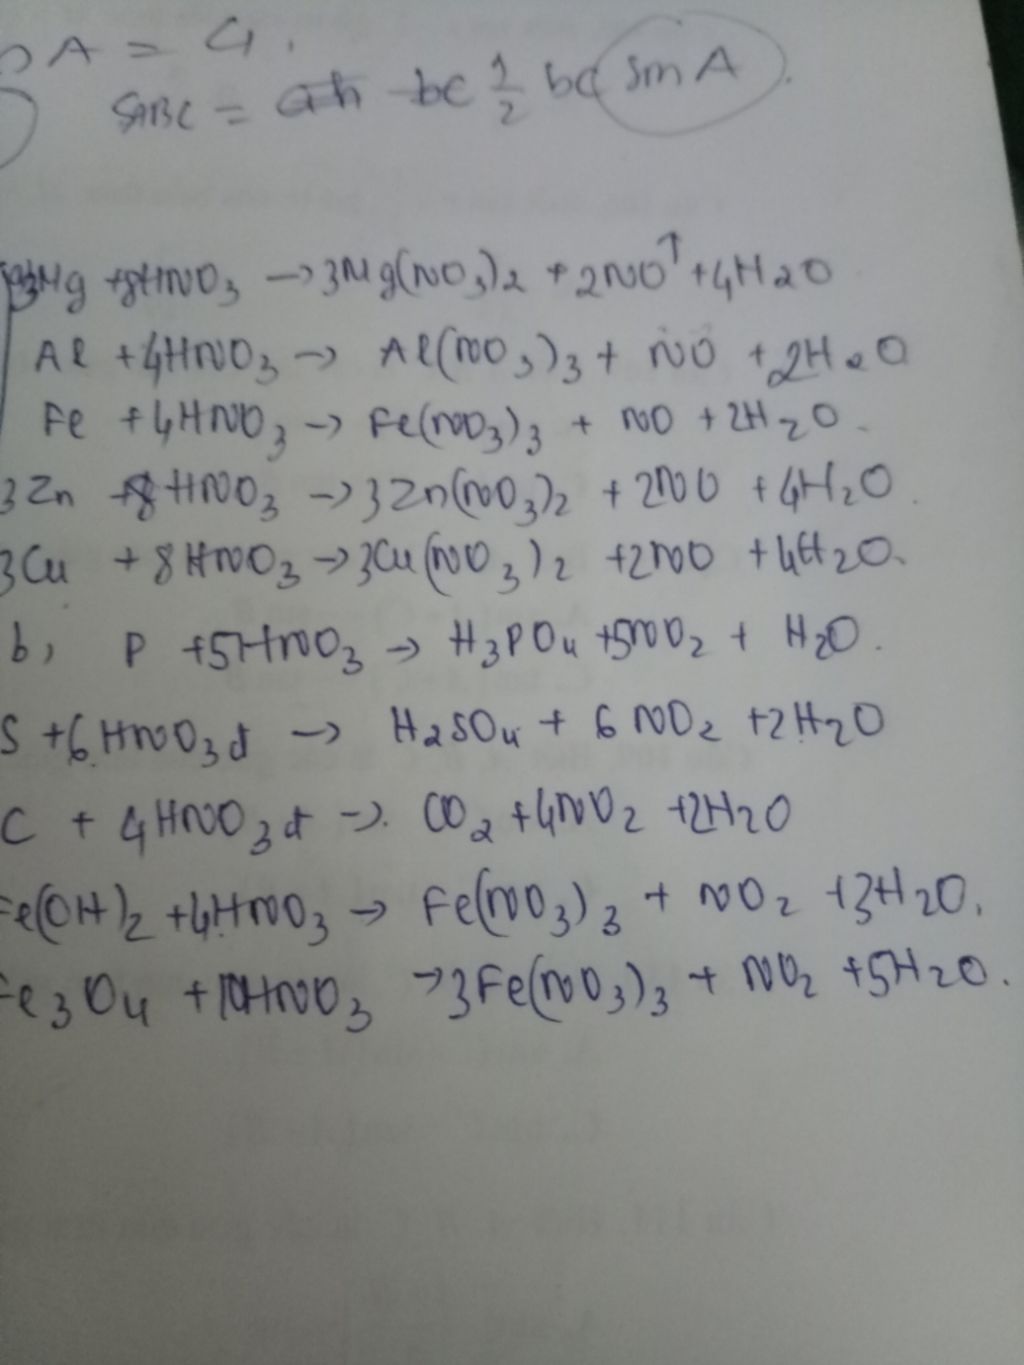 A = 4.
SABC = ah bc 1/2 bc sin A
3Mg + 8HNO3 → 3Mg(NO3)2 + 2NO↑ + 4H2O
Al + 4HNO3 → Al(NO3)3 + NO + 2H2O
Fe + 4HNO3 → Fe(NO3)3 + NO + 2H2O.
3Zn + 8HNO3 → 3Zn(NO3)2 + 2NO + 4H2O.
3Cu + 8HNO3 → 3Cu(NO3)2 + 2NO + 4H2O.
b, P + 5HNO3 → H3PO4 + 5NO2 + H2O.
S + 6HNO3đ → H2SO4 + 6NO2 + 2H2O
C + 4HNO3đ → CO2 + 4NO2 + 2H2O
Fe(OH)2 + 4HNO3 → Fe(NO3)3 + NO2 + 3H2O.
Fe3O4 + 10HNO3 → 3Fe(NO3)3 + NO2 + 5H2O.